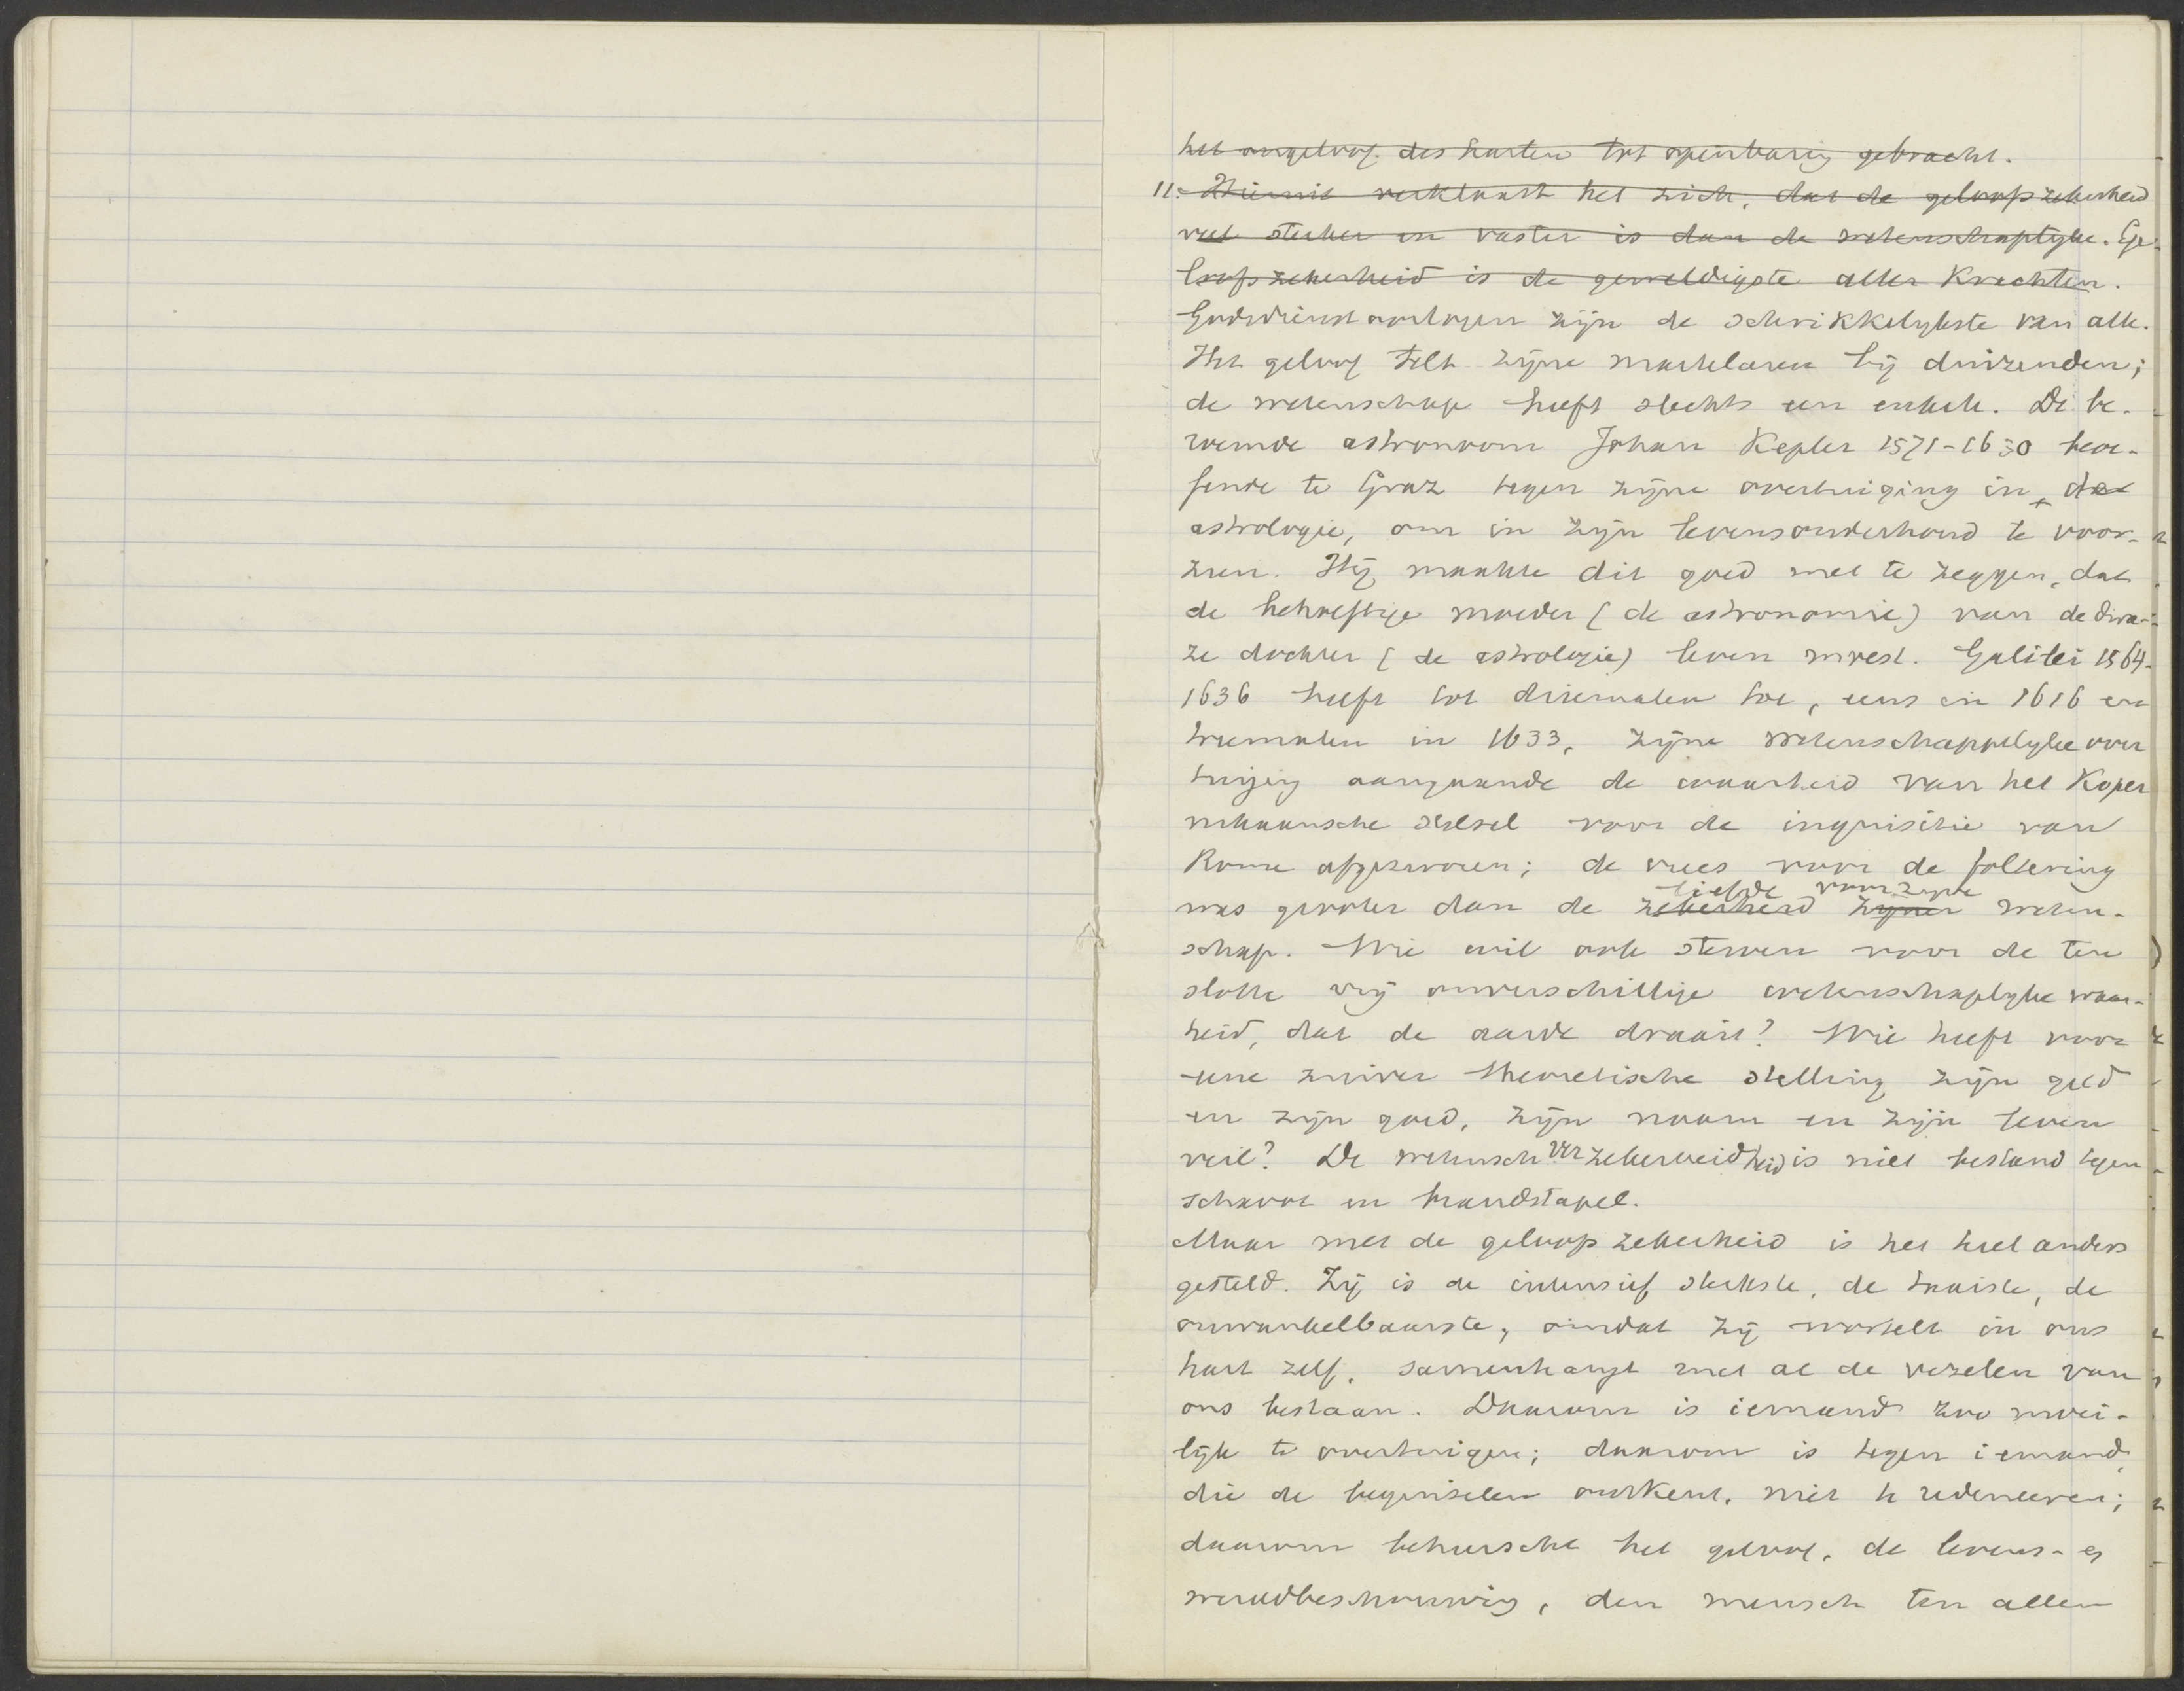 het ongeloof des harten tot openbaring gebracht.
11. Hieruit verklaart het zich, dat de geloofszekerheid
veel sterker en vaster is dan de wetenschaplyke. Ge-
loofszekerheid is de geweldigste aller krachten.
Godsdienstoorlogen zijn de schrikkelykste van alle.
Het geloof telt zijne martelaren bij duizenden;
de wetenschap heeft slechts een enkele. De be-
roemde astronoom Johan Kepler 1571-1630 beoe-
fende te Graz tegen zijne overtuiging in, de
astrologie, om in zijn levensonderhoud te voor-
zien. Hij maakte dit goed met te zeggen, dat
de behoeftige moeder (de astronomie) van de dwa-
ze dochter (de astrologie) leven moest. Galilei 1564-
1636 heeft tot driemalen toe, eens in 1616 en
tweemalen in 1633, zijne wetenschappelyke over
tuiging aangaande de waarheid van het Koper
nikaansche stelsel voor de inquisitie van
Rome afgezworen; de vrees voor de foltering
liefde voor zijne
was grooter dan de zekerheid zijner weten-
schap. Wie wil ook sterven voor de ten
slotte vrij onverschillige wetenschaplyke waar-
heid, dat de aarde draait? Wie heeft voor
eene zuiver theoretische stelling zijn geld
en zijn goed, zijn naam en zijn leven
veil? De wetensch zekerheid is niet bestand tegen
schavot en brandstapel.
Maar met de geloofszekerheid is het heel anders
gesteld. Zij is de intensief sterkste, de taaiste, de
onwankelbaarste, omdat zij wortelt in ons
hart zelf, samenhangt met al de vezelen van
ons bestaan. Daarom is iemand zoo moei-
lijk te overtuigen; daarom is tegen iemand,
die de beginselen ontkent, niet te redeneeren;
daarom beheerscht het geloof, de levens- en
wereldbeschouwing, den mensch ten allen